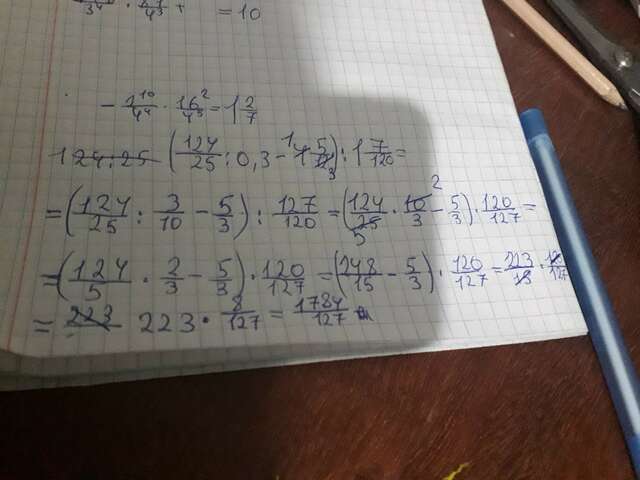 = 10
= 1 2/7
(124/25 : 0,3 - 1 5/3) : 1 7/120 =
= (124/25 : 3/10 - 5/3) : 127/120 = (124/25 · 10/3 - 5/3) · 120/127 =
= (124/5 · 2/3 - 5/3) · 120/127 = (248/15 - 5/3) · 120/127 = 223/15 · 120/127
= 223 · 8/127 = 1784/127